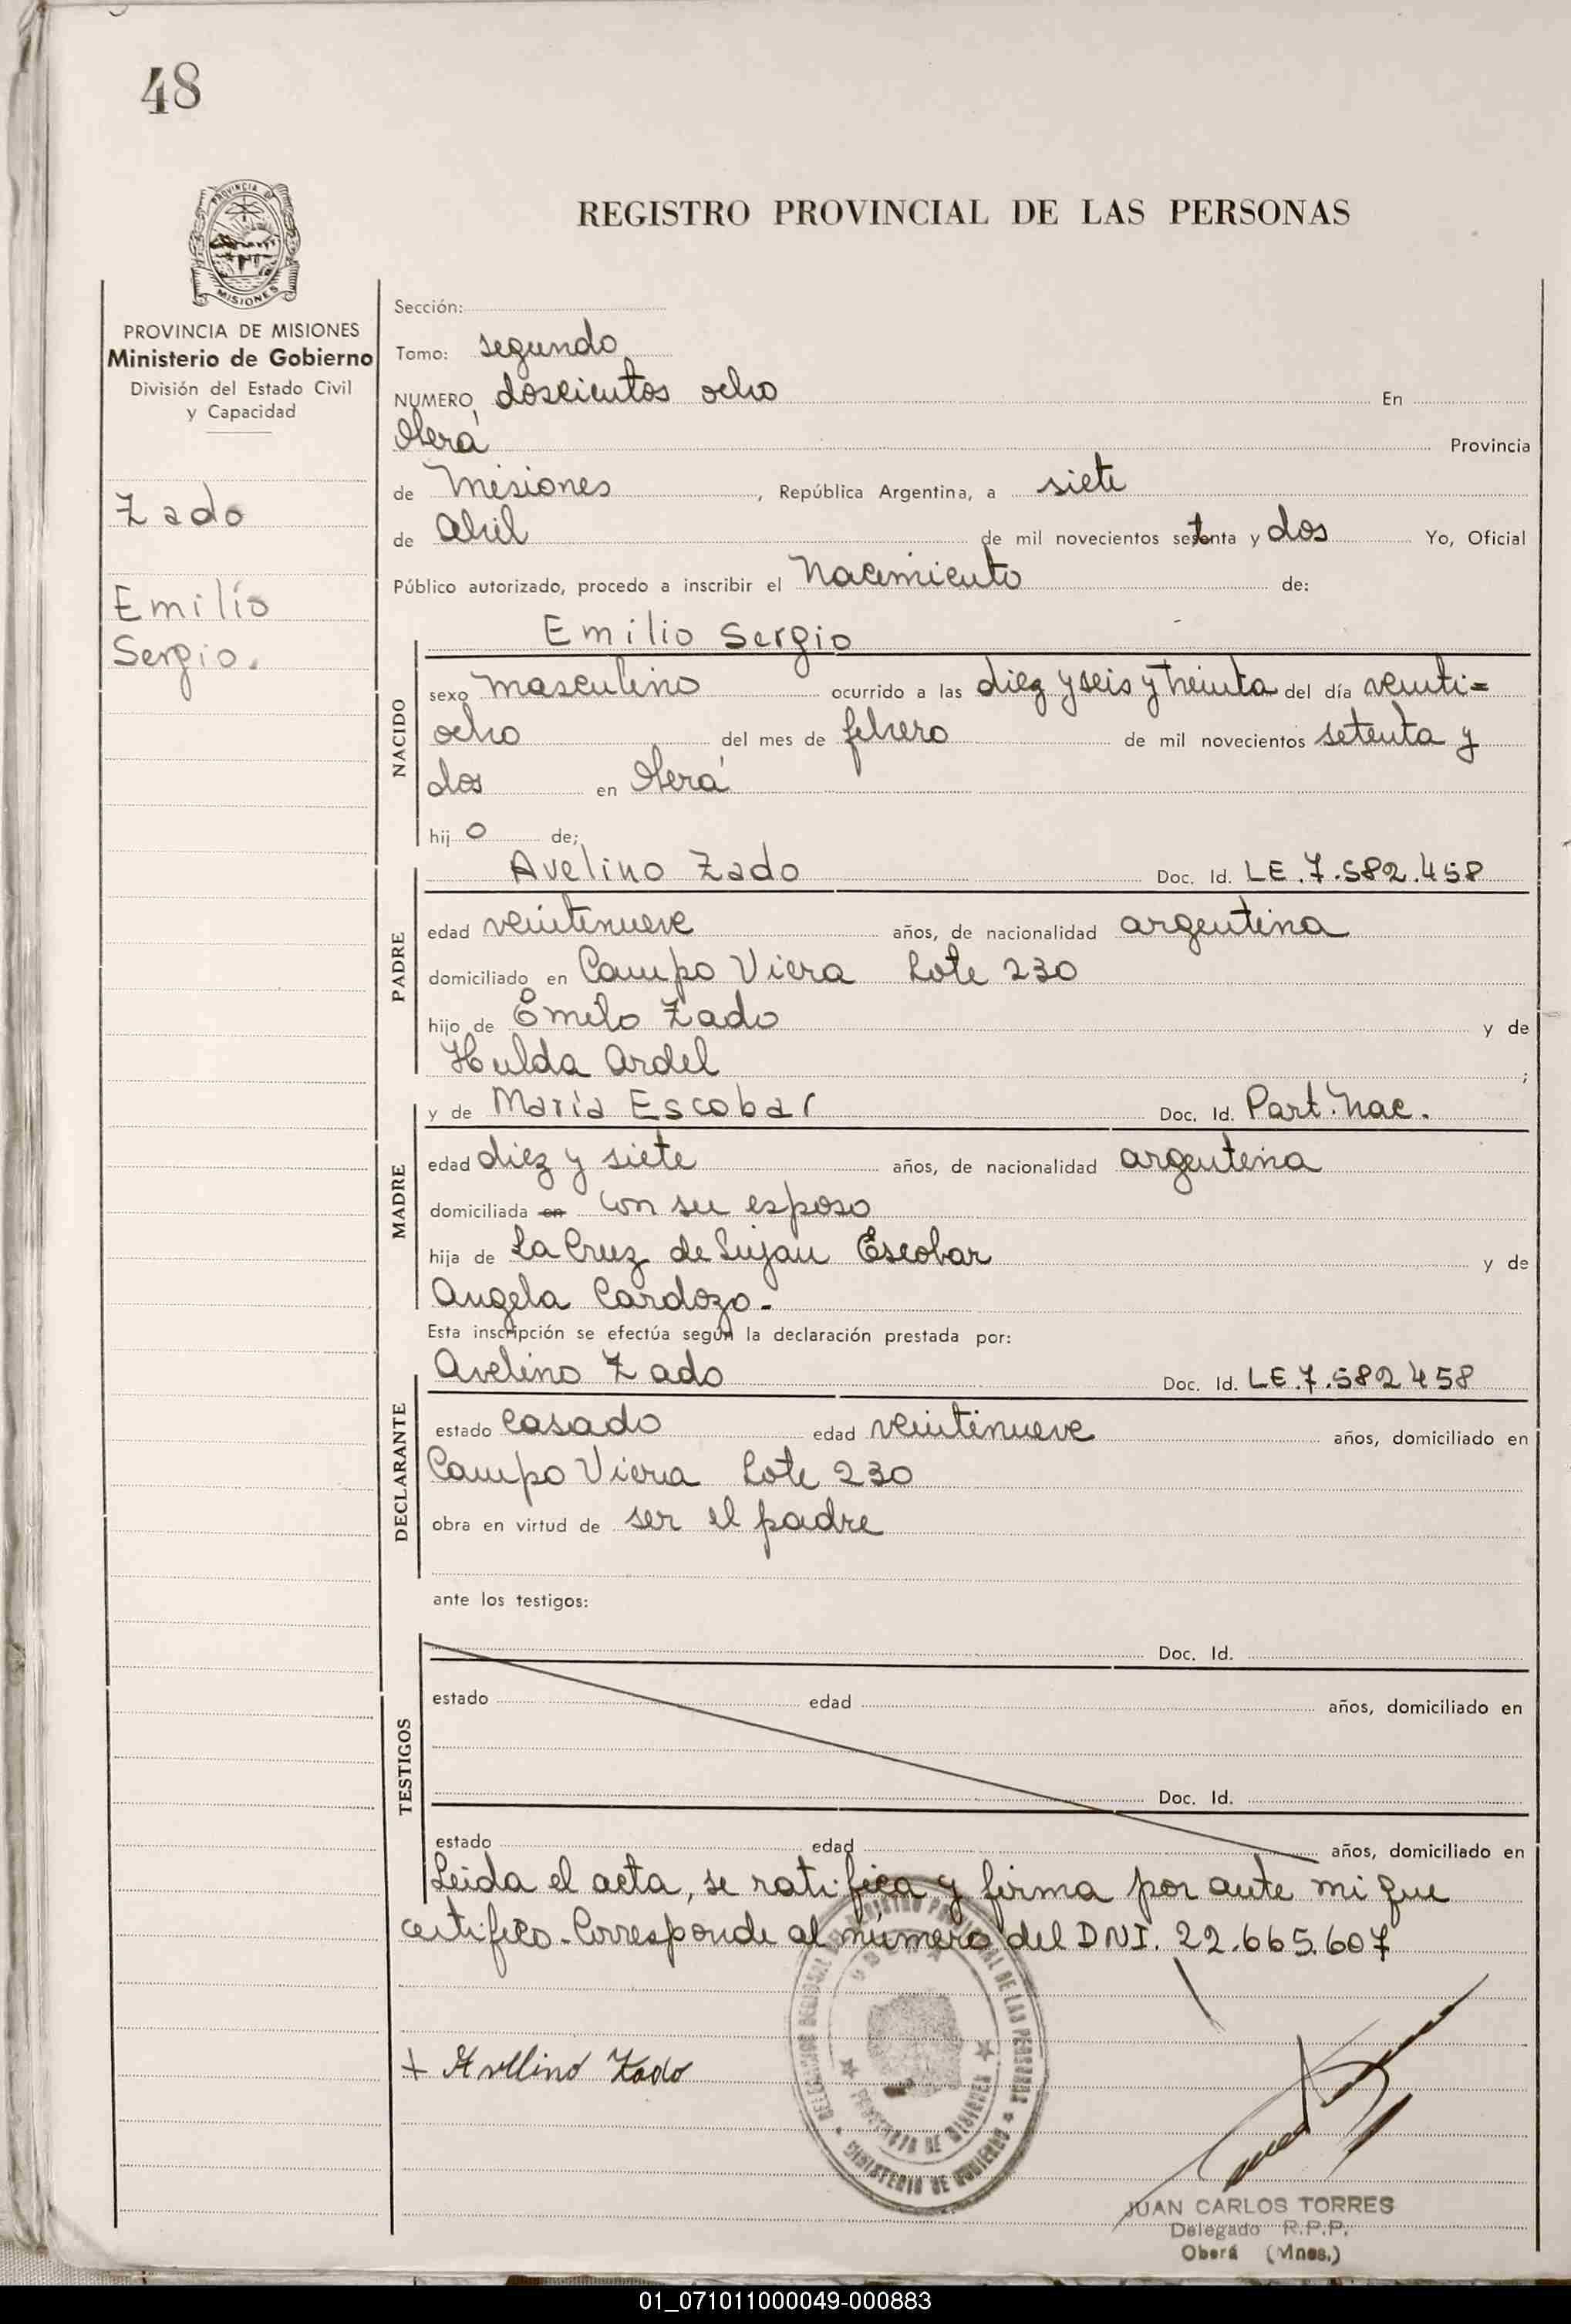 48
PROVINCIA DE
MISIONES
REGISTRO PROVINCIAL DE LAS PERSONAS
PROVINCIA DE MISIONES
Ministerio de Gobierno
División del Estado Civil
y Capacidad
Zado
Emilio
Sergio.
Sección:
Tomo: segundo
NUMERO doscientos ocho En
Oberá Provincia
de Misiones, República Argentina, a siete
de Abril de mil novecientos setenta y dos Yo, Oficial
Público autorizado, procedo a inscribir el Nacimiento de:
Emilio Sergio
NACIDO
sexo masculino ocurrido a las diez y seis y treinta del día veinti=
ocho del mes de febrero de mil novecientos setenta y
dos en Oberá
hijo de;
PADRE
Avelino Zado Doc. Id. LE.7.582.458
edad veintinueve años, de nacionalidad argentina
domiciliado en Campo Viera Lote 230
hijo de Emilo Zado y de
Hulda Ardel ;
MADRE
y de María Escobar Doc. Id. Part. Nac.
edad diez y siete años, de nacionalidad argentina
domiciliada en con su esposo
hija de La Cruz de Lujan Escobar y de
Angela Cardozo.-
Esta inscripción se efectúa según la declaración prestada por:
DECLARANTE
Avelino Zado Doc. Id. LE.7.582.458
estado casado edad veintinueve años, domiciliado en
Campo Viera Lote 230
obra en virtud de ser el padre
ante los testigos:
TESTIGOS
Doc. Id.
estado edad años, domiciliado en
Doc. Id.
estado edad años, domiciliado en
Leida el acta, se ratifica y firma por ante mi que
certifico.- Corresponde al número del DNI. 22.665.607
+ Avelino Zado
REGISTRO PROVINCIAL DE LAS PERSONAS
PROVINCIA DE MISIONES
MINISTERIO DE GOBIERNO
JUAN CARLOS TORRES
Delegado R.P.P.
Oberá (Mnes.)
01_071011000049-000883